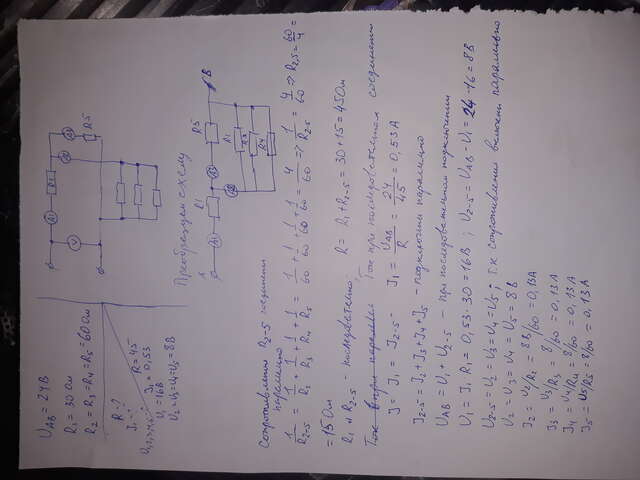 U_AB = 24 В
R1 = 30 Ом
R2 = R3 = R4 = R5 = 60 Ом
R - ?
R = 45
I1 = 0,53
U1 = 16В
U2=U3=U4=U5 = 8В
Преобразуем схему
A
R1
R5
B
R5
Сопротивления R2-5 соединены
параллельно
1/R2-5 = 1/R2 + 1/R3 + 1/R4 + 1/R5 = 1/60 + 1/60 + 1/60 + 1/60 = 4/60 => 1/R2-5 = 4/60 => R2-5 = 60/4 =
= 15 Ом
R1 и R2-5 - последовательно R = R1 + R2-5 = 30 + 15 = 45 Ом
Ток при последовательном соединении
I = I1 = I2-5 I1 = U_AB/R = 24/45 = 0,53 А
I2-5 = I2 + I3 + I4 + I5 - подключены параллельно
U_AB = U1 + U2-5 - при последовательном подключении
U1 = I1 R1 = 0,53 · 30 = 16В ; U2-5 = U_AB - U1 = 24 - 16 = 8В
U2-5 = U2 = U3 = U4 = U5, т.к сопротивления включены параллельно
U2 = U3 = U4 = U5 = 8 В
I2 = U2/R2 = 8В/60 = 0,13А
I3 = U3/R3 = 8/60 = 0,13 А
I4 = U4/R4 = 8/60 = 0,13А
I5 = U5/R5 = 8/60 = 0,13А